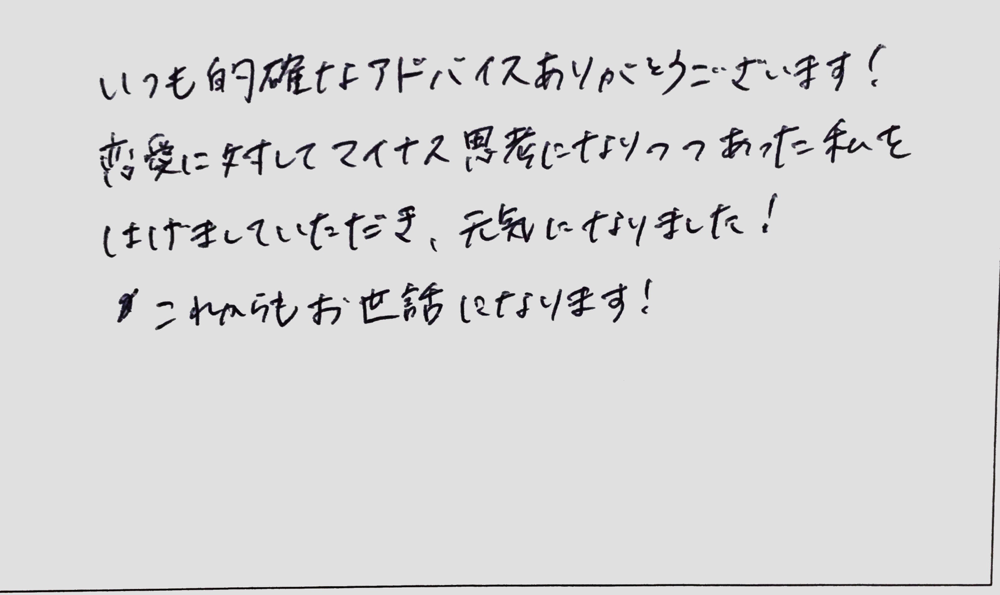 いつも的確なアドバイスありがとうございます!
恋愛に対してマイナス思考になりつつあった私を
はげましていただき、元気になりました!
これからもお世話になります!